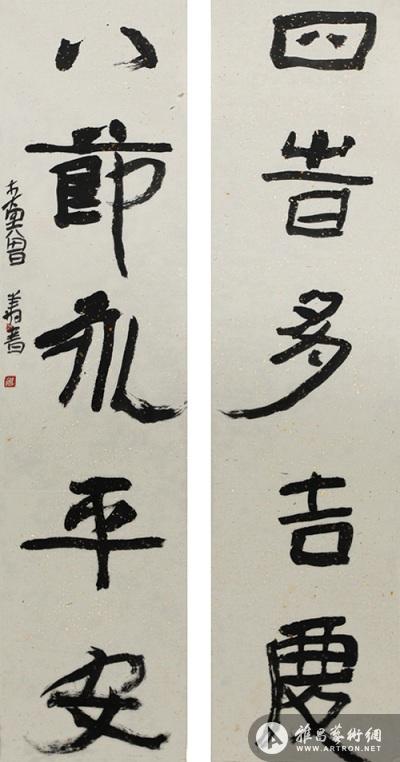 四旹多吉慶
八節永平安
曾翔書
雅昌藝術網
WWW.ARTRON.NET